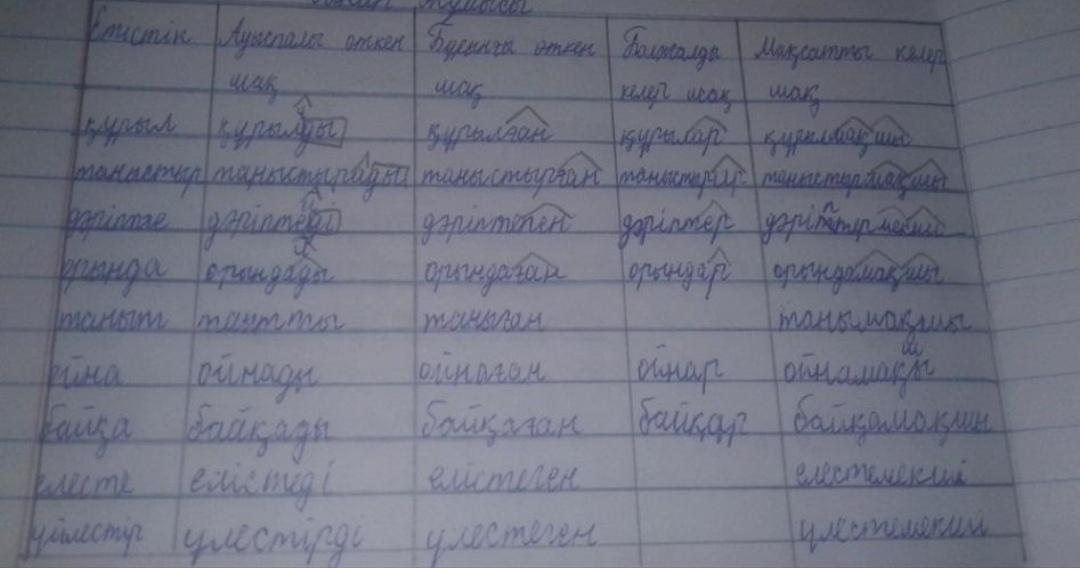 Етістік Ауыспалы өткен шақ Бұрынғы өткен шақ Болжалды келер шақ Мақсатты келер шақ
құрыл құрылды құрылған құрылар құрылмақшы
таныстыр таныстырады таныстырған таныстырар таныстырмақшы
дәріпте дәріптеді дәріптеген дәріптер
орында орындады орындаған орындар орындамақшы
таныт танытты таныған танымақшы
ойна ойнады ойнаған ойнар ойнамақшы
байқа байқады байқаған байқар байқамақшы
елесте елістеді елістеген елестемекші
үйлестір үлестірді үлестеген үлестемекші